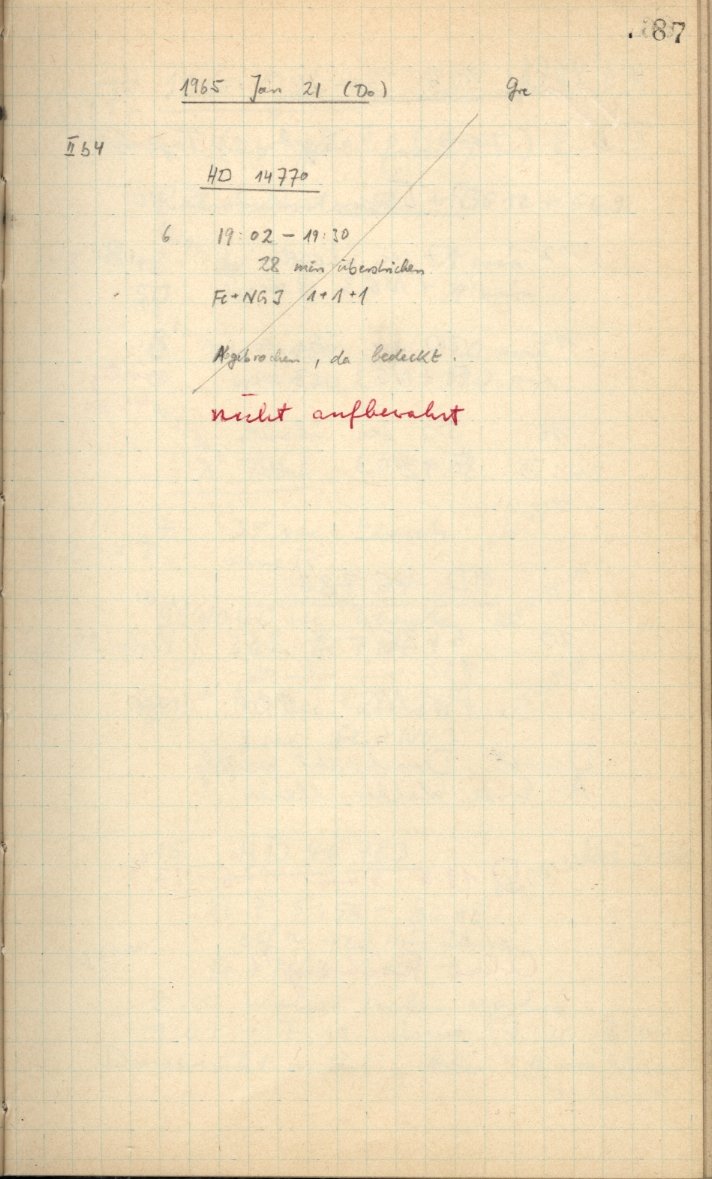 87
1965 Jan 21 (Do) Gre
II b4
HD 14770
6 19:02 – 19:30
28 min überstrichen
Fe+NG3 1+1+1
Abgebrochen, da bedeckt.
nicht aufbewahrt